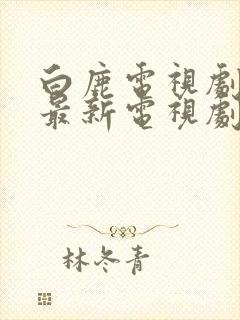 白鹿電視劇
最新電視劇
林冬青